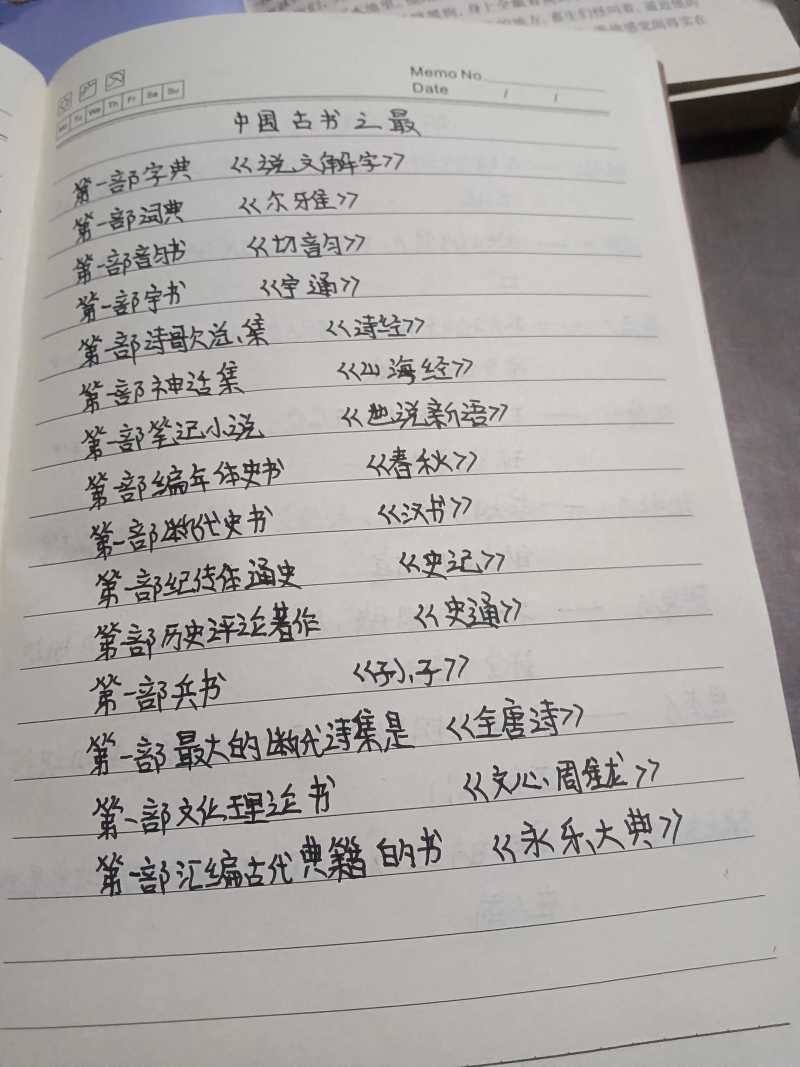 Memo No.
Date / /
Mo Tu We Th Fr Sa Su
中国古书之最
第一部字典 《说文解字》
第一部词典 《尔雅》
第一部音韵书 《切韵》
第一部字书 《字通》
第一部诗歌总集 《诗经》
第一部神话集 《山海经》
第一部笔记小说 《世说新语》
第一部编年体史书 《春秋》
第一部断代史书 《汉书》
第一部纪传体通史 《史记》
第一部历史评论著作 《史通》
第一部兵书 《孙子》
第一部最大的断代诗集是 《全唐诗》
第一部文化理论书 《文心周隹龙》
第一部汇编古代典籍的书 《永乐大典》